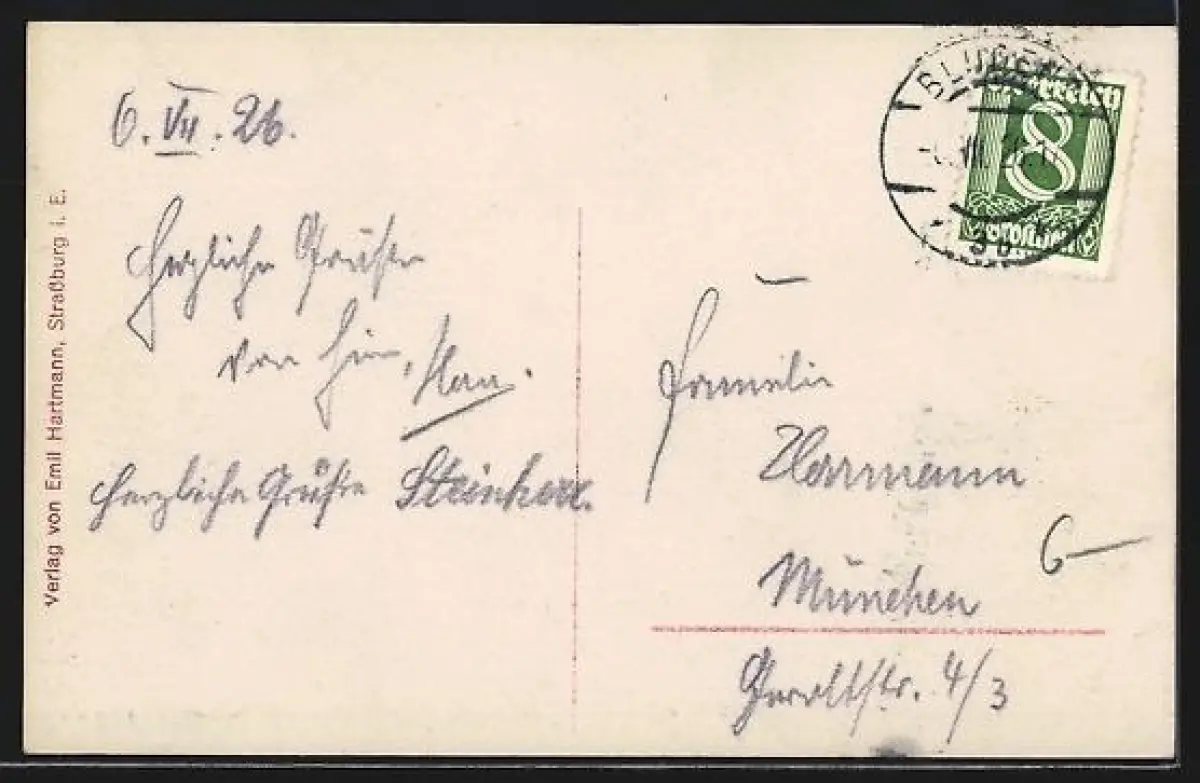 6. VII. 26.
Herzliche Grüße
von
Herzliche Grüße Steinherr.
Verlag von Emil Hartmann, Straßburg i. E.
BLUDENZ
Österreich
8
Groschen
Familie
Herrmann
München
4/3
6-